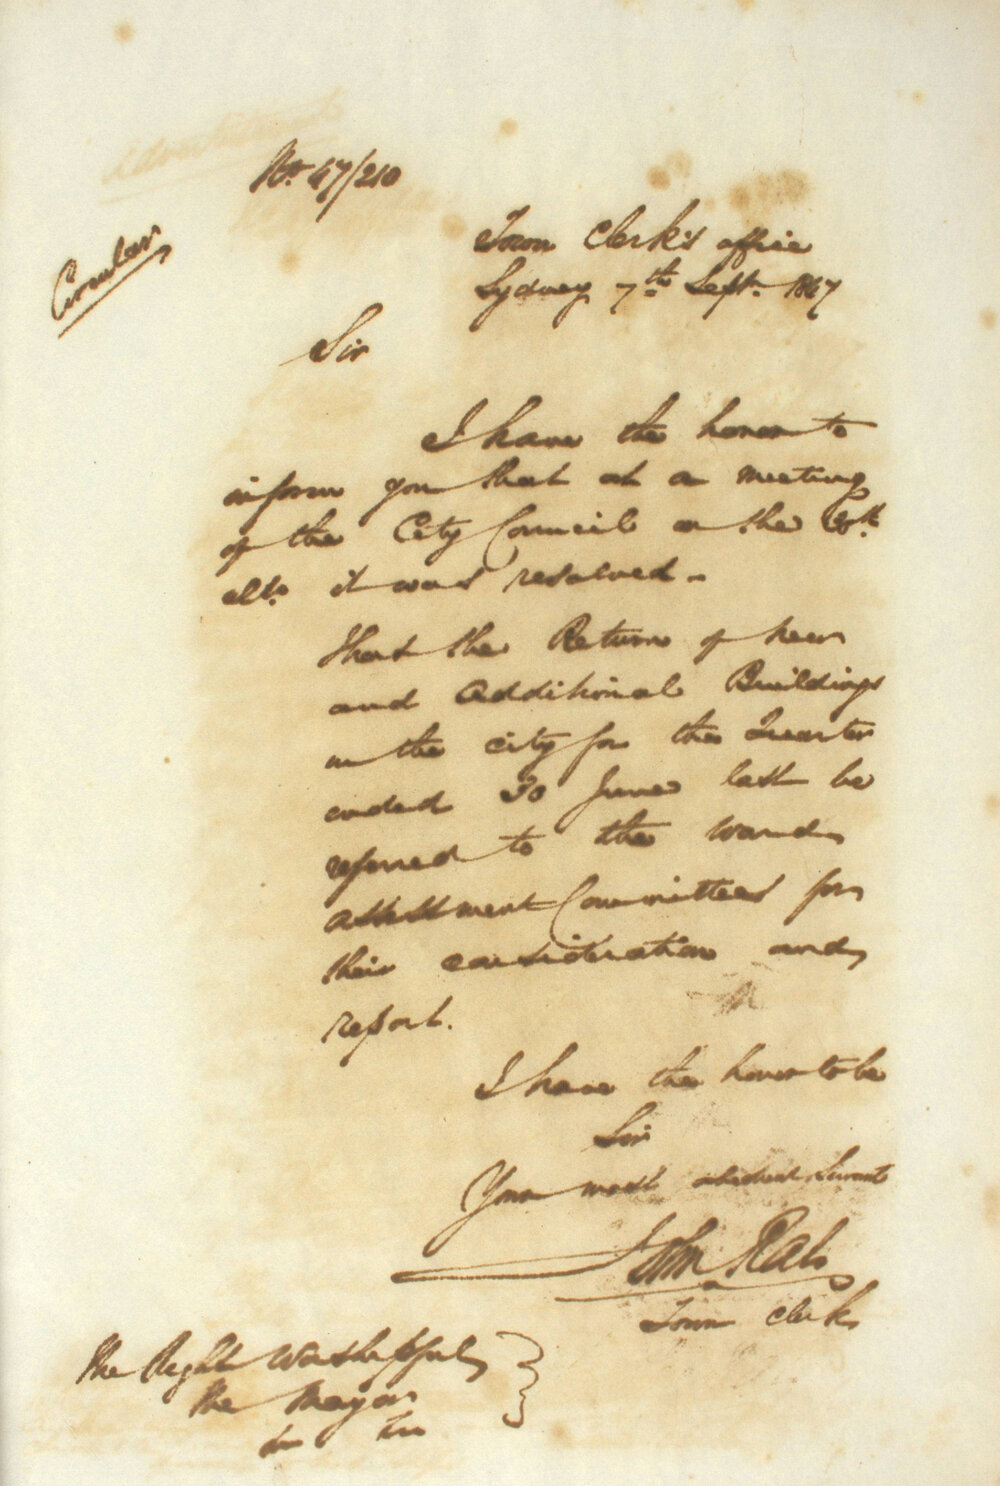 No. 47/210
Circular
Town Clerk's office
Sydney 7th Sept. 1847
Sir
I have the honor to
inform you that at a meeting
of the City Council on the
ulto it was resolved -
That the Return of new
and Additional Buildings
in the city for the Quarter
ended 30 June last be
referred to the Ward
Assessment Committees for
their consideration and
report.
I have the honor to be
Sir
Your most obedient Servant
John Rae
Town Clerk
The Right Worshipful
the Mayor